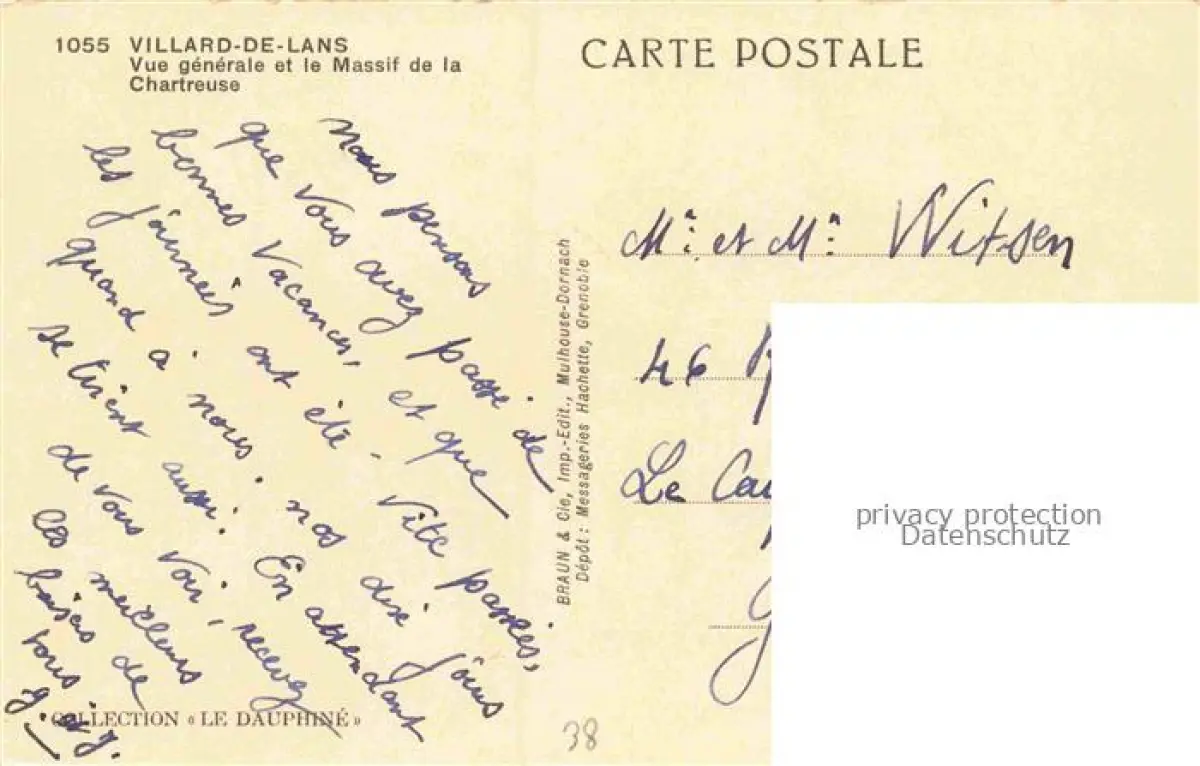 1055 VILLARD-DE-LANS
Vue générale et le Massif de la
Chartreuse
CARTE POSTALE
Nous pensons
que vous avez passé de
bonnes vacances, et que
les journées ont été vite passées,
quand à nous nos dix jours
se tirent aussi. En attendant
de vous voir, recevez
les meilleurs
baisers de
tous
g. et g.
COLLECTION « LE DAUPHINÉ »
BRAUN & Cie, Imp.-Edit., Mulhouse-Dornach
Dépôt : Messageries Hachette, Grenoble
Mr. et Mn. Witsen
46
Le
privacy protection
Datenschutz
38